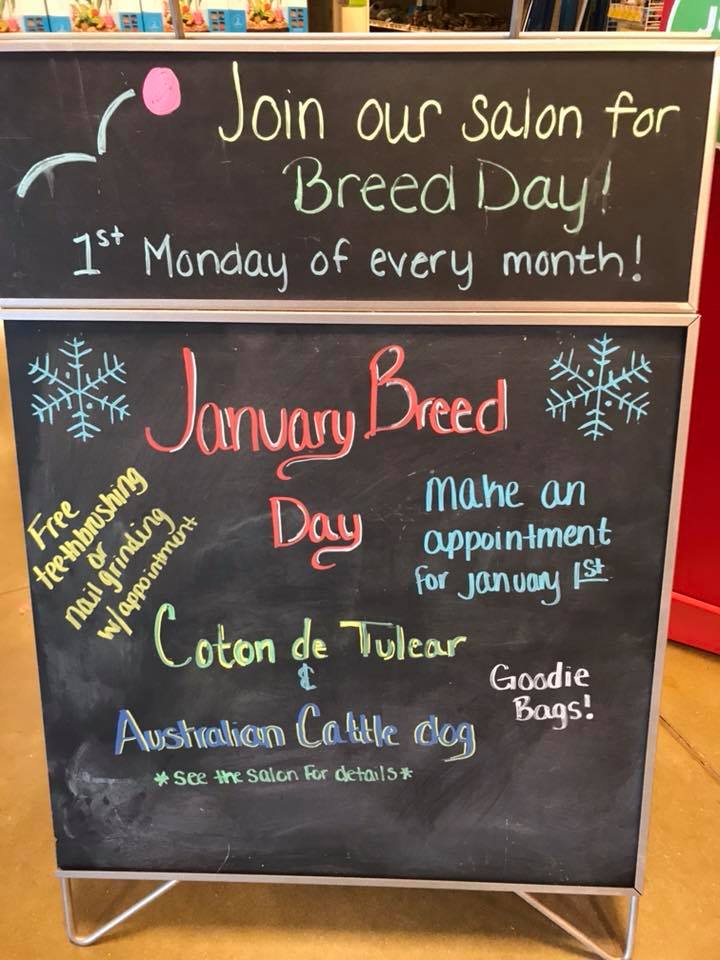 Join our salon for
Breed Day!
1st Monday of every month!
January Breed
Day
Free
teethbrushing
or
nail grinding
w/appointment
make an
appointment
for january 1st
Coton de Tulear
&
Australian Cattle dog
Goodie
Bags!
*See the salon for details*